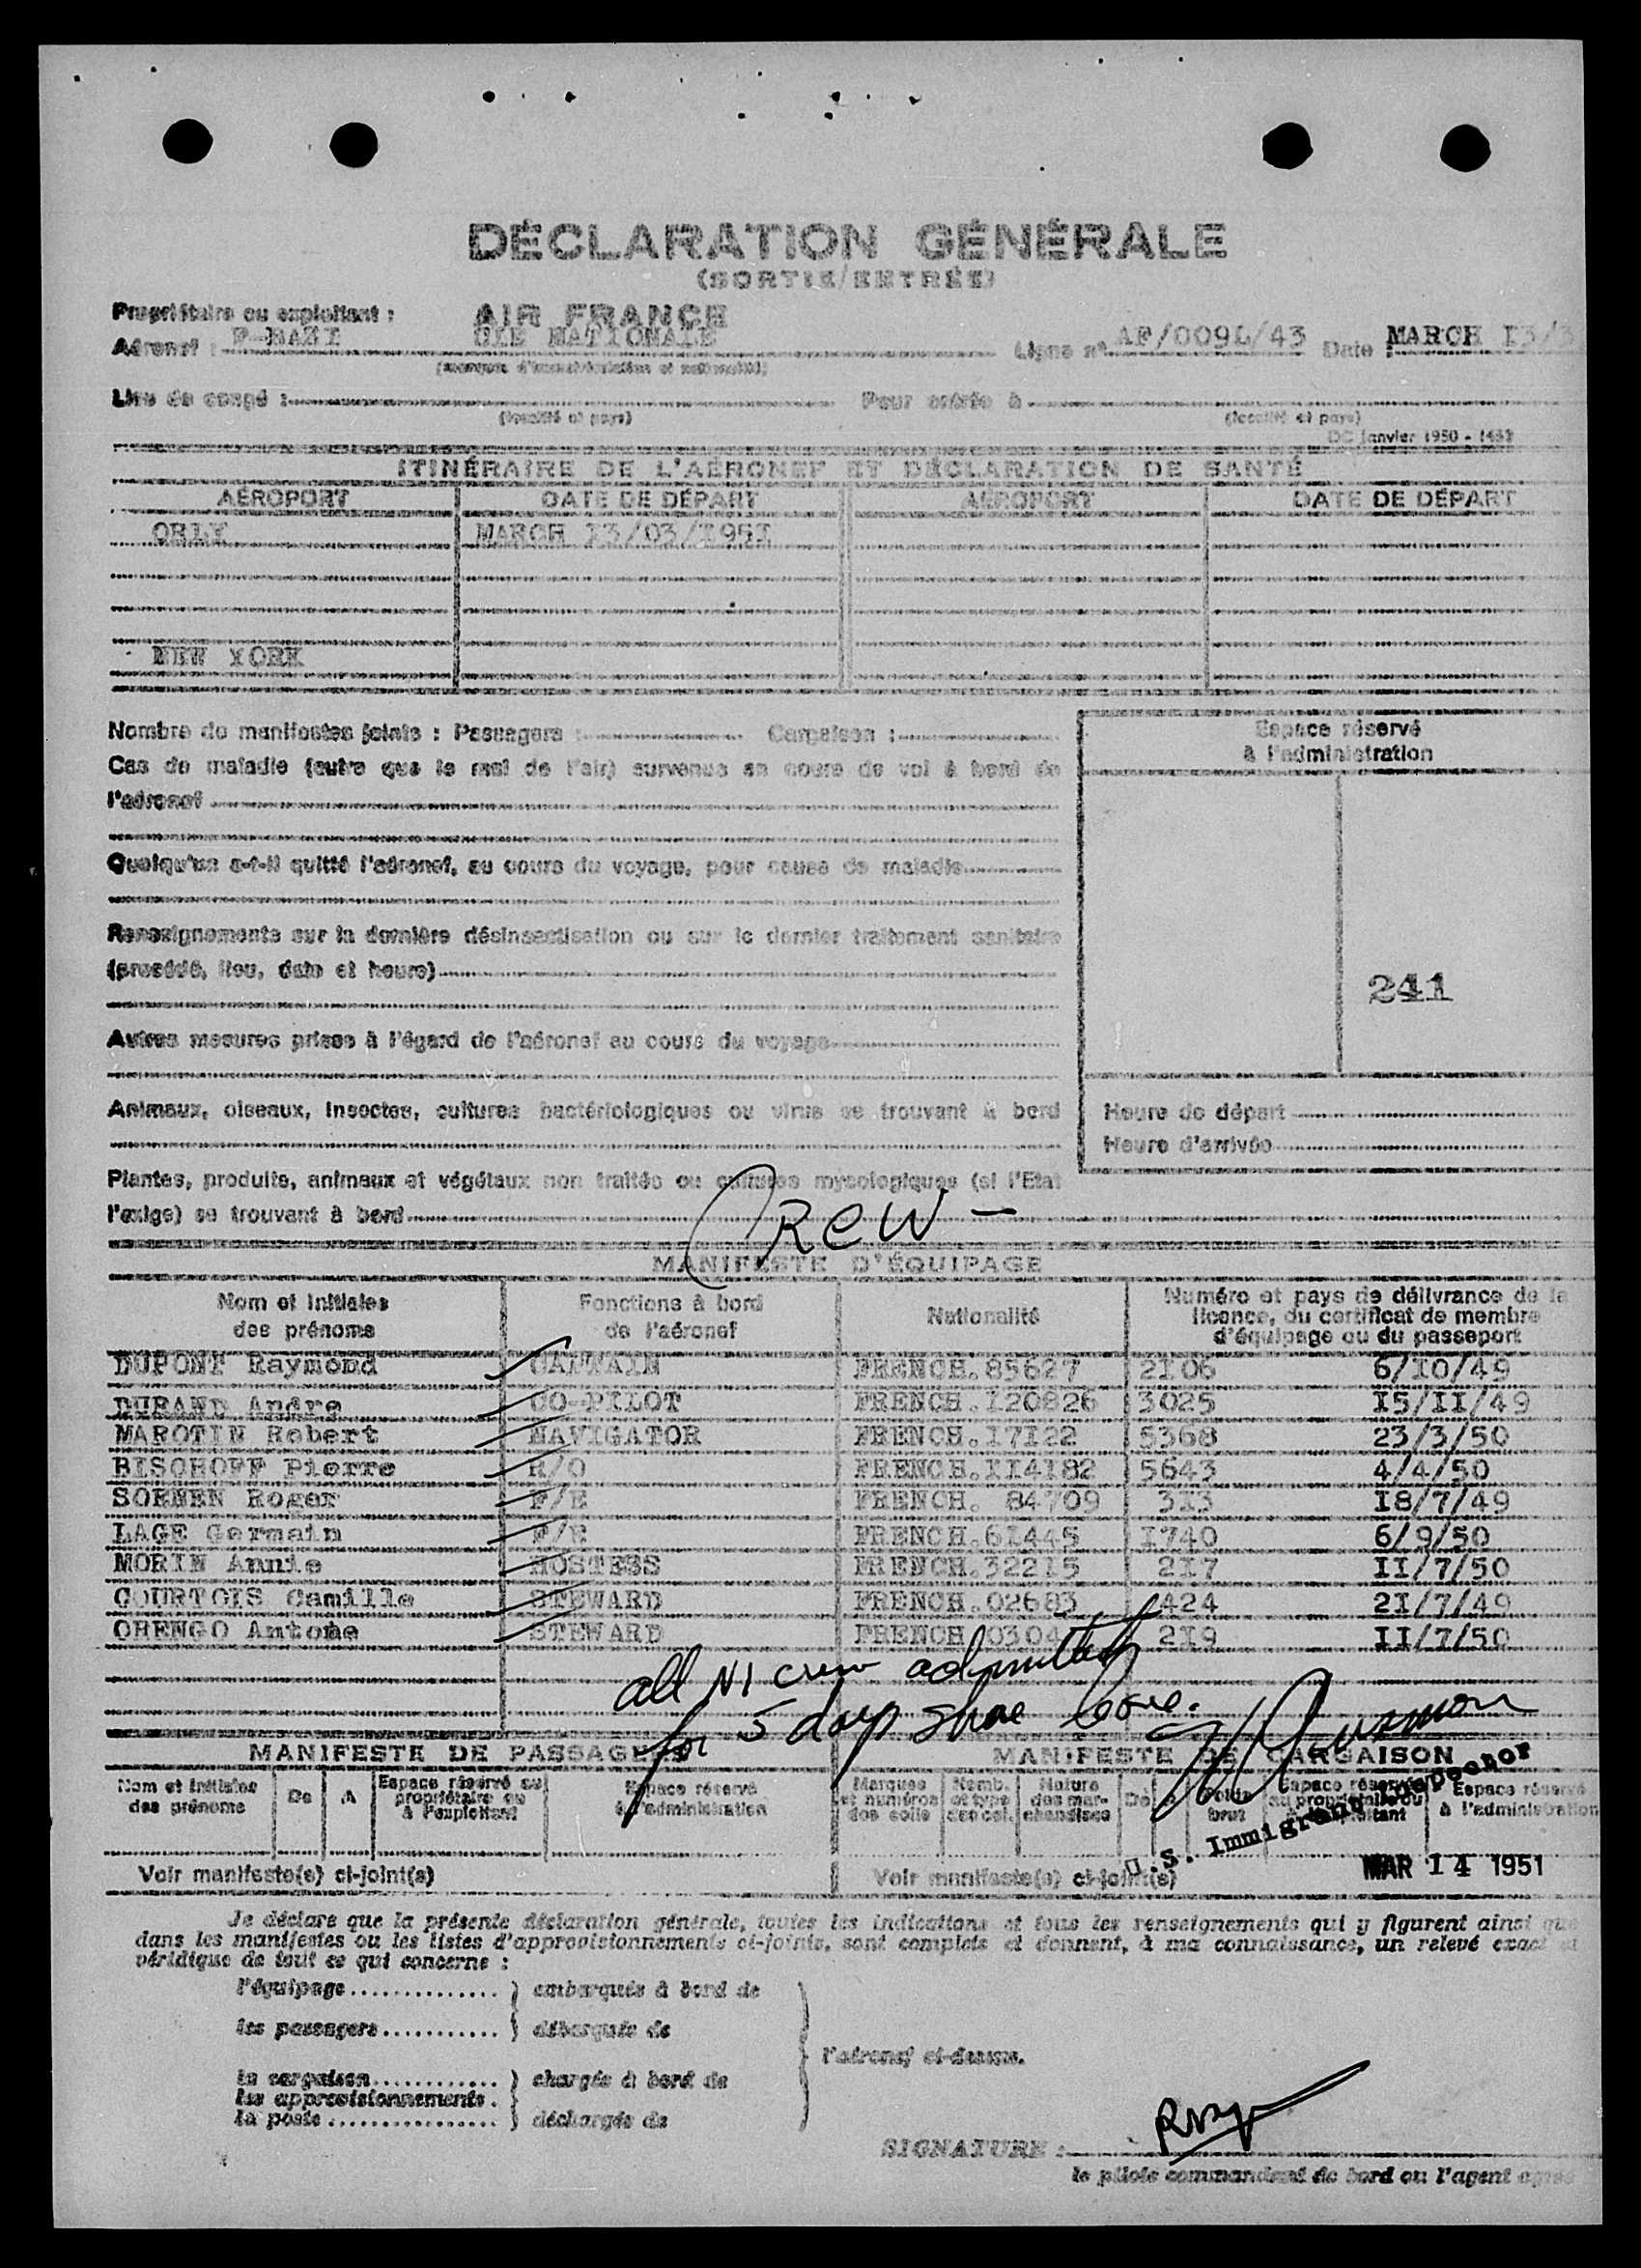 DÉCLARATION GÉNÉRALE
(SORTIE/ENTRÉE)
Propriétaire ou exploitant : AIR FRANCE
Aéronef : CIE NATIONALE Ligne n° AF/009L/43 Date : MARCH I3/3
(marques d'immatriculation et nationalité)
Lieu de congé : Pour entrée à
(localité et pays) (localité et pays)
DC janvier 1950 -
ITINÉRAIRE DE L'AÉRONEF ET DÉCLARATION DE SANTÉ
AÉROPORT DATE DE DÉPART AÉROPORT DATE DE DÉPART
ORLY MARCH I3/03/I95I
NEW YORK
Nombre de manifestes joints : Passagers : Cargaison :
Espace réservé
à l'administration
Cas de maladie (autre que le mal de l'air) survenus en cours de vol à bord de
l'aéronef
Quelqu'un a-t-il quitté l'aéronef, au cours du voyage, pour cause de maladie
Renseignements sur la dernière désinsectisation ou sur le dernier traitement sanitaire
(procédé, lieu, date et heure)
241
Autres mesures prises à l'égard de l'aéronef au cours du voyage
Animaux, oiseaux, insectes, cultures bactériologiques ou virus se trouvant à bord
Heure de départ
Heure d'arrivée
Plantes, produits, animaux et végétaux non traités ou cultures mycologiques (si l'Etat
l'exige) se trouvant à bord
CREW -
MANIFESTE D'ÉQUIPAGE
Nom et initiales des prénoms
Fonctions à bord de l'aéronef
Nationalité
Numéro et pays de délivrance de la licence, du certificat de membre d'équipage ou du passeport
DUPONT Raymond CAPTAIN FRENCH.85627 2I06 6/I0/49
DURAND Andre CO-PILOT FRENCH.I20826 3025 I5/II/49
MAROTIN Robert NAVIGATOR FRENCH.I7I22 5368 23/3/50
BISCHOFF Pierre R/O FRENCH.II4I82 5643 4/4/50
SORNEN Roger F/E FRENCH. 84709 3I3 I8/7/49
LAGE Germain F/E FRENCH.6I445 I740 6/9/50
MORIN Annie HOSTESS FRENCH.322I5 2I7 II/7/50
COURTOIS Camille STEWARD FRENCH.02683 424 2I/7/49
ORENGO Antone STEWARD FRENCH 2I9 II/7/50
all N1 crew admitted
for 5 days shore leave.
MANIFESTE DE PASSAGERS MANIFESTE DE CARGAISON
Nom et initiales des prénoms
De
A
Espace réservé au propriétaire ou à l'exploitant
Espace réservé à l'administration
Marques et numéros des colis
Nomb. et type des col.
Nature des marchandises
De
Poids brut
Espace réservé au propriétaire ou à l'exploitant
Espace réservé à l'administration
U.S. Immigrant Inspector
Voir manifeste(s) ci-joint(s) Voir manifeste(s) ci-joint(s)
MAR 14 1951
Je déclare que la présente déclaration générale, toutes les indications et tous les renseignements qui y figurent ainsi que
dans les manifestes ou les listes d'approvisionnements ci-joints, sont complets et donnent, à ma connaissance, un relevé exact et
véridique de tout ce qui concerne :
l'équipage } embarqués à bord de
les passagers } débarqués de
l'aéronef ci-dessus.
la cargaison } chargés à bord de
les approvisionnements
la poste } déchargés de
SIGNATURE :
le pilote commandant de bord ou l'agent agréé